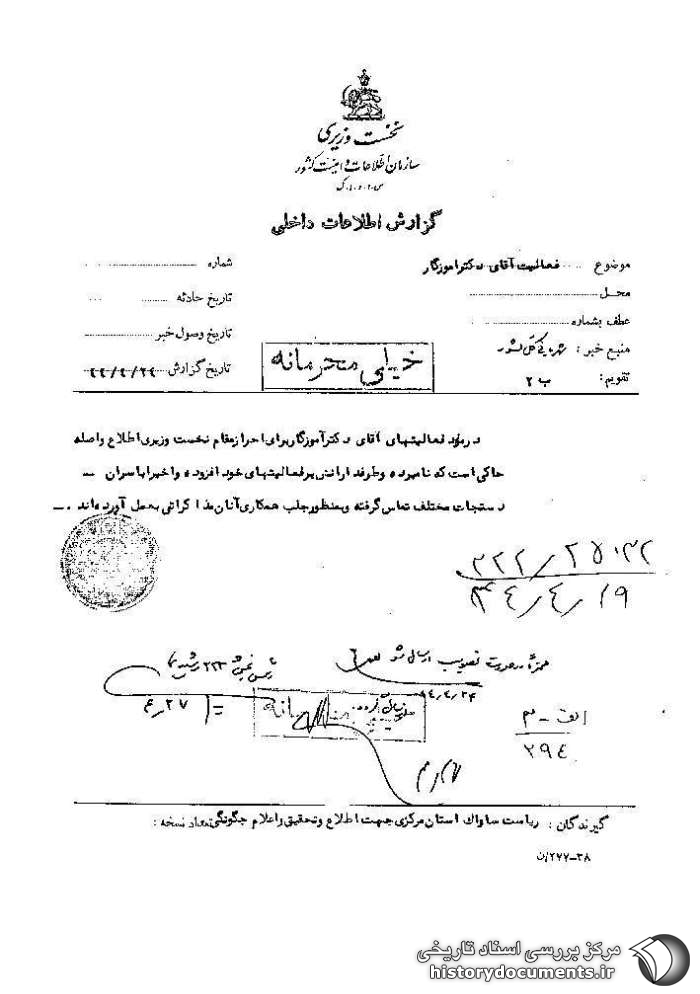 نخست وزیری
سازمان اطلاعات و امنیت کشور
س.ا.و.ا.ک
گزارش اطلاعات داخلی
موضوع فعالیت آقای دکتر آموزگار
محل
عطف بشماره
منبع خبر : شهربانی کل کشور
تقویم: ب ۲
شماره
تاریخ حادثه
تاریخ وصول خبر
تاریخ گزارش ۴۴/۴/۲۴
خیلی محرمانه
در مورد فعالیتهای آقای دکتر آموزگار برای احراز مقام نخست وزیری اطلاع واصله
حاکی است که نامبرده و طرفدارانش بر فعالیتهای خود افزوده و اخیرا با سران –
دستجات مختلف تماس گرفته و بمنظور جلب همکاری آنان مذاکراتی بعمل آورده‌اند . –
۴۴/۴/۱۹
رئیس بخش ۲۲۳
۴۴/۴/۲۴
۲۷/۴
الف - ۳
۲۹۴
گیرندگان : ریاست ساواک استان مرکزی جهت اطلاع و تحقیق و اعلام چگونگی تعداد نسخه :
۲۷۷-۳۸/ن
مرکز بررسی اسناد تاریخی
historydocuments.ir